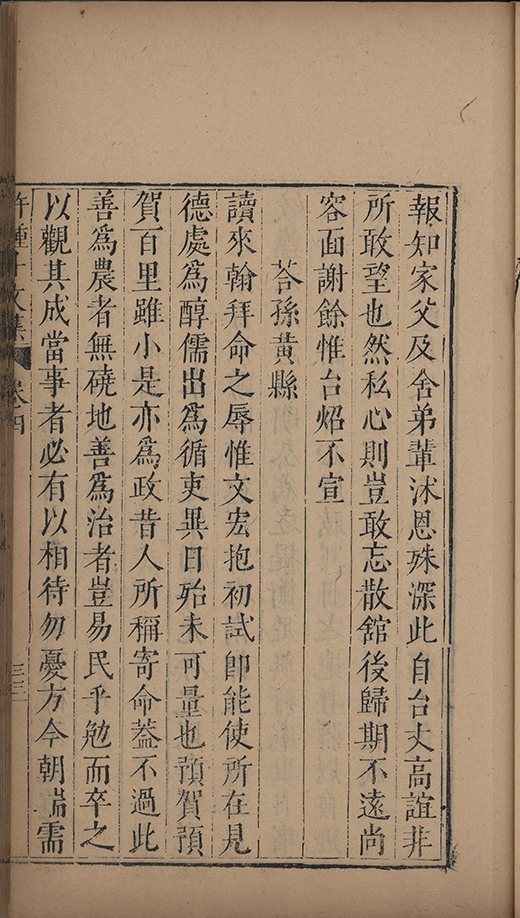 報知家父及舍弟輩沭恩殊深此自台丈高誼非
所敢望也然私心則豈敢忘散舘後歸期不遠尚
容面謝餘惟台炤不宣
荅孫黃縣
讀來翰拜命之辱惟文宏抱初試即能使所在見
德處爲醇儒出爲循吏異日殆未可量也預賀預
賀百里雖小是亦爲政昔人所稱寄命葢不過此
善爲農者無磽地善爲治者豈易民乎勉而卒之
以觀其成當事者必有以相待勿憂方今朝端需
許鍾斗文集 卷四 三三